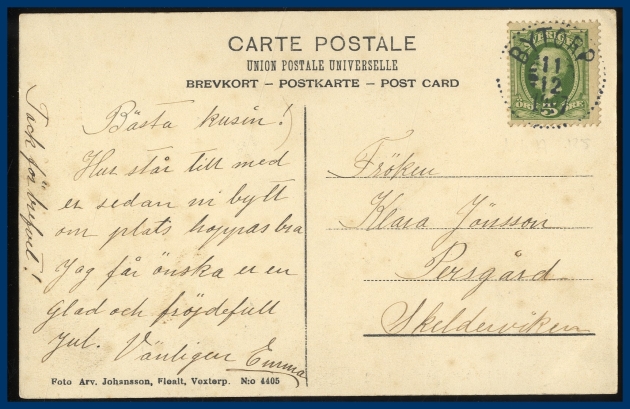 CARTE POSTALE
UNION POSTALE UNIVERSELLE
BREVKORT – POSTKARTE – POST CARD
Tack för brefvet!
Bästa kusin!
Hur står till med
er sedan ni bytt
om plats hoppas bra
Jag får önska er en
glad och fröjdefull
jul. Vänligen Emma
Foto Arv. Johansson, Floalt, Voxtorp. N:o 4405
SVERIGE
11
12
5
ÖRE
Fröken
Klara Jönsson
Persgård
Skelderviken